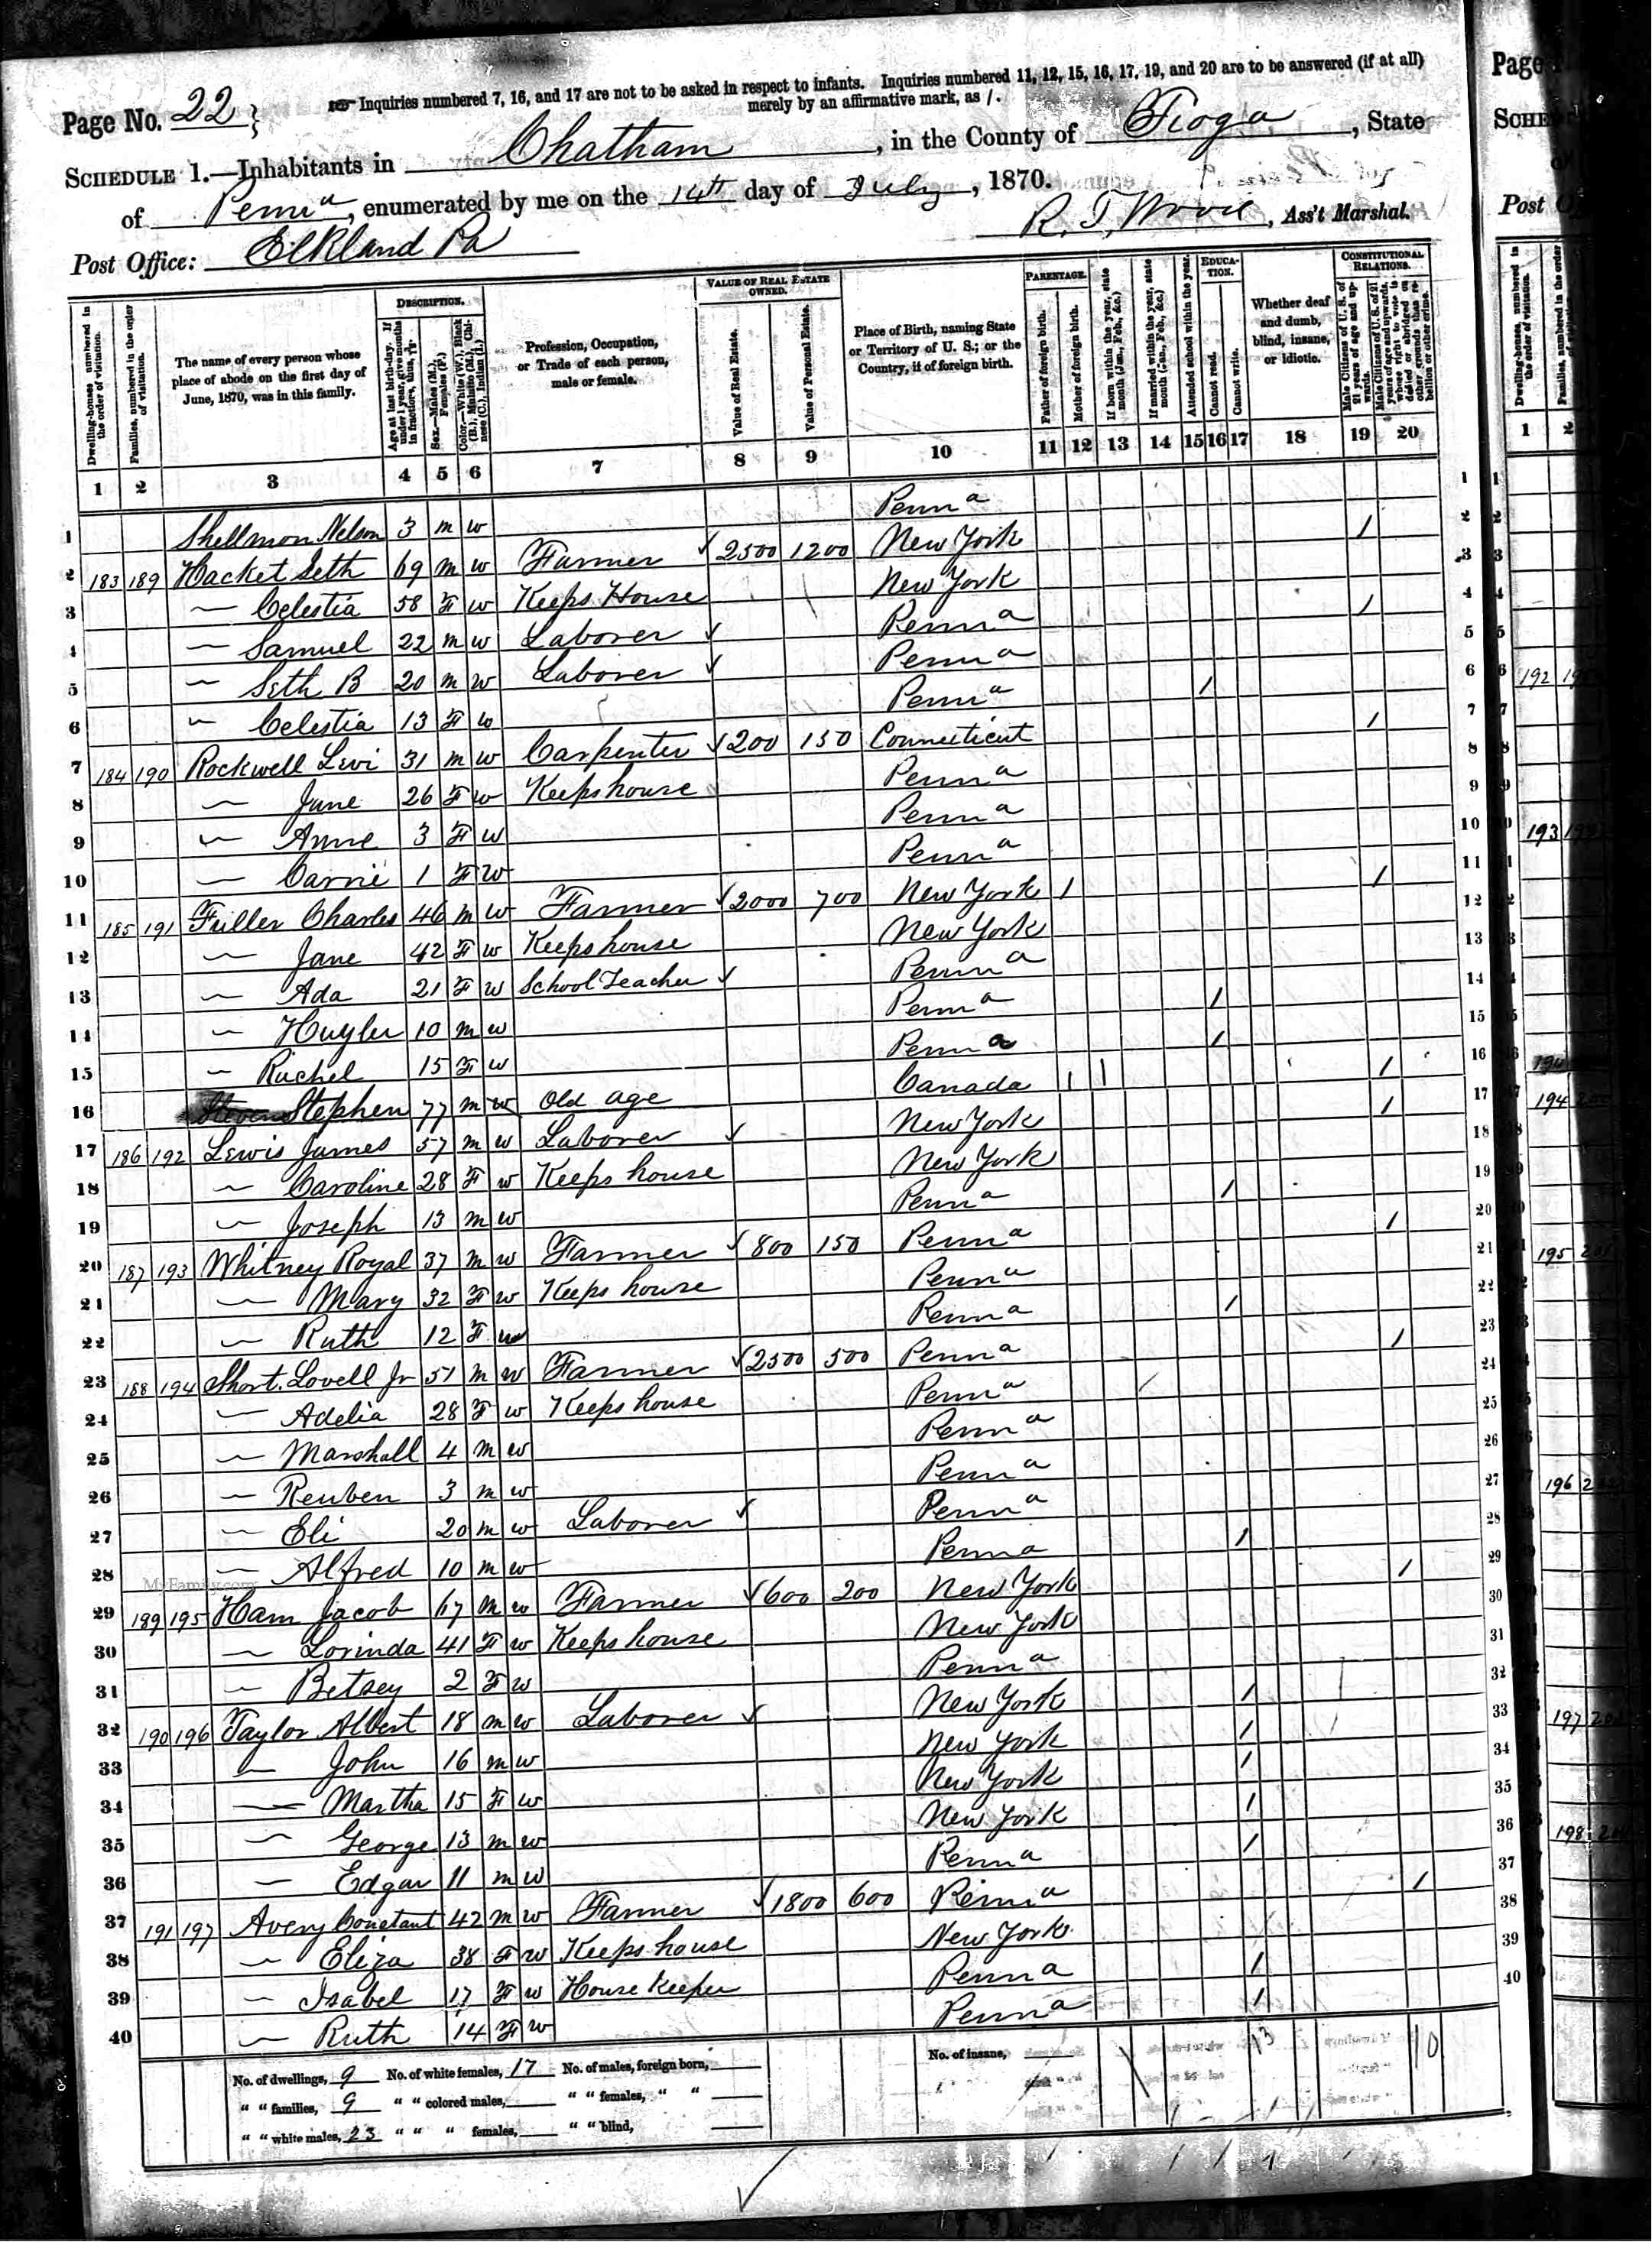 Page No. 22
Inquiries numbered 7, 16, and 17 are not to be asked in respect to infants. Inquiries numbered 11, 12, 15, 16, 17, 19, and 20 are to be answered (if at all)
merely by an affirmative mark, as /.
SCHEDULE 1.—Inhabitants in Chatham, in the County of Tioga, State
of Penna, enumerated by me on the 14th day of July, 1870.
Post Office: Elkland Pa
R. T. , Ass't Marshal.
Dwelling-houses, numbered in the order of visitation.
Families, numbered in the order of visitation.
The name of every person whose place of abode on the first day of June, 1870, was in this family.
DESCRIPTION.
Age at last birth-day. If under 1 year, give months in fractions, thus,
Sex.—Males (M.), Females (F.)
Color.—White (W.), Black (B.), Mulatto (M.), Chinese (C.), Indian (I.)
Profession, Occupation, or Trade of each person, male or female.
VALUE OF REAL ESTATE OWNED.
Value of Real Estate.
Value of Personal Estate.
Place of Birth, naming State or Territory of U. S.; or the Country, if of foreign birth.
PARENTAGE.
Father of foreign birth.
Mother of foreign birth.
If born within the year, state month (Jan., Feb., &c.)
If married within the year, state month (Jan., Feb., &c.)
EDUCATION.
Attended school within the year.
Cannot read.
Cannot write.
Whether deaf and dumb, blind, insane, or idiotic.
CONSTITUTIONAL RELATIONS.
Male Citizens of U. S. of 21 years of age and upwards.
Male Citizens of U. S. of 21 years of age and upwards, whose right to vote is denied or abridged on other grounds than rebellion or other crime.
1 2 3 4 5 6 7 8 9 10 11 12 13 14 15 16 17 18 19 20
1 Shellmon Nelson 3 m w Penna 1
2 183 189 Hacket Seth 69 m w Farmer ✓ 2500 1200 New York / 2
3 — Celestia 58 F w Keeps House New York 3
4 — Samuel 22 m w Laborer ✓ Penna / 4
5 — Seth B 20 m w Laborer ✓ Penna 5
6 — Celestia 13 F w Penna / 6
7 184 190 Rockwell Levi 31 m w Carpenter ✓ 200 150 Connecticut / 7
8 — Jane 26 F w Keeps house Penna 8
9 — Anne 3 F w Penna 9
10 — Carrie 1 F w Penna 10
11 185 191 Fuller Charles 46 m w Farmer ✓ 2000 700 New York / / 11
12 — Jane 42 F w Keeps house New York 12
13 — Ada 21 F w School Teacher ✓ Penna 13
14 — Huyler 10 m w Penna / 14
15 — Rachel 15 F w Penna / 15
16 Stephen 77 m w Old age Canada / / / 16
17 186 192 Lewis James 57 m w Laborer ✓ New York / 17
18 — Caroline 28 F w Keeps house New York 18
19 — Joseph 13 m w Penna / 19
20 187 193 Whitney Royal 37 m w Farmer ✓ 800 150 Penna / 20
21 — Mary 32 F w Keeps house Penna 21
22 — Ruth 12 F w Penna / 22
23 188 194 Short Lovell Jr 51 m w Farmer ✓ 2500 500 Penna / 23
24 — Adelia 28 F w Keeps house Penna / 24
25 — Marshall 4 m w Penna 25
26 — Reuben 3 m w Penna 26
27 — Eli 20 m w Laborer ✓ Penna 27
28 — Alfred 10 m w Penna / 28
MyFamily.com
29 189 195 Ham Jacob 67 m w Farmer ✓ 600 200 New York / 29
30 — Lorinda 41 F w Keeps house New York 30
31 — Betsey 2 F w Penna 31
32 190 196 Taylor Albert 18 m w Laborer ✓ New York / 32
33 — John 16 m w New York / 33
34 — Martha 15 F w New York / 34
35 — George 13 m w New York / 35
36 — Edgar 11 m w Penna / 36
37 191 197 Avery Constant 42 m w Farmer ✓ 1800 600 Penna / 37
38 — Eliza 38 F w Keeps house New York 38
39 — Isabel 17 F w House Keeper Penna / 39
40 — Ruth 14 F w Penna / 40
No. of dwellings, 9 No. of white females, 17 No. of males, foreign born, No. of insane, 13 10
" " families, 9 " " colored males, " " females, " "
" " white males, 23 " " " females, " " blind,
Page
SCHE
Post
192
193
194
194
195
196
197
198